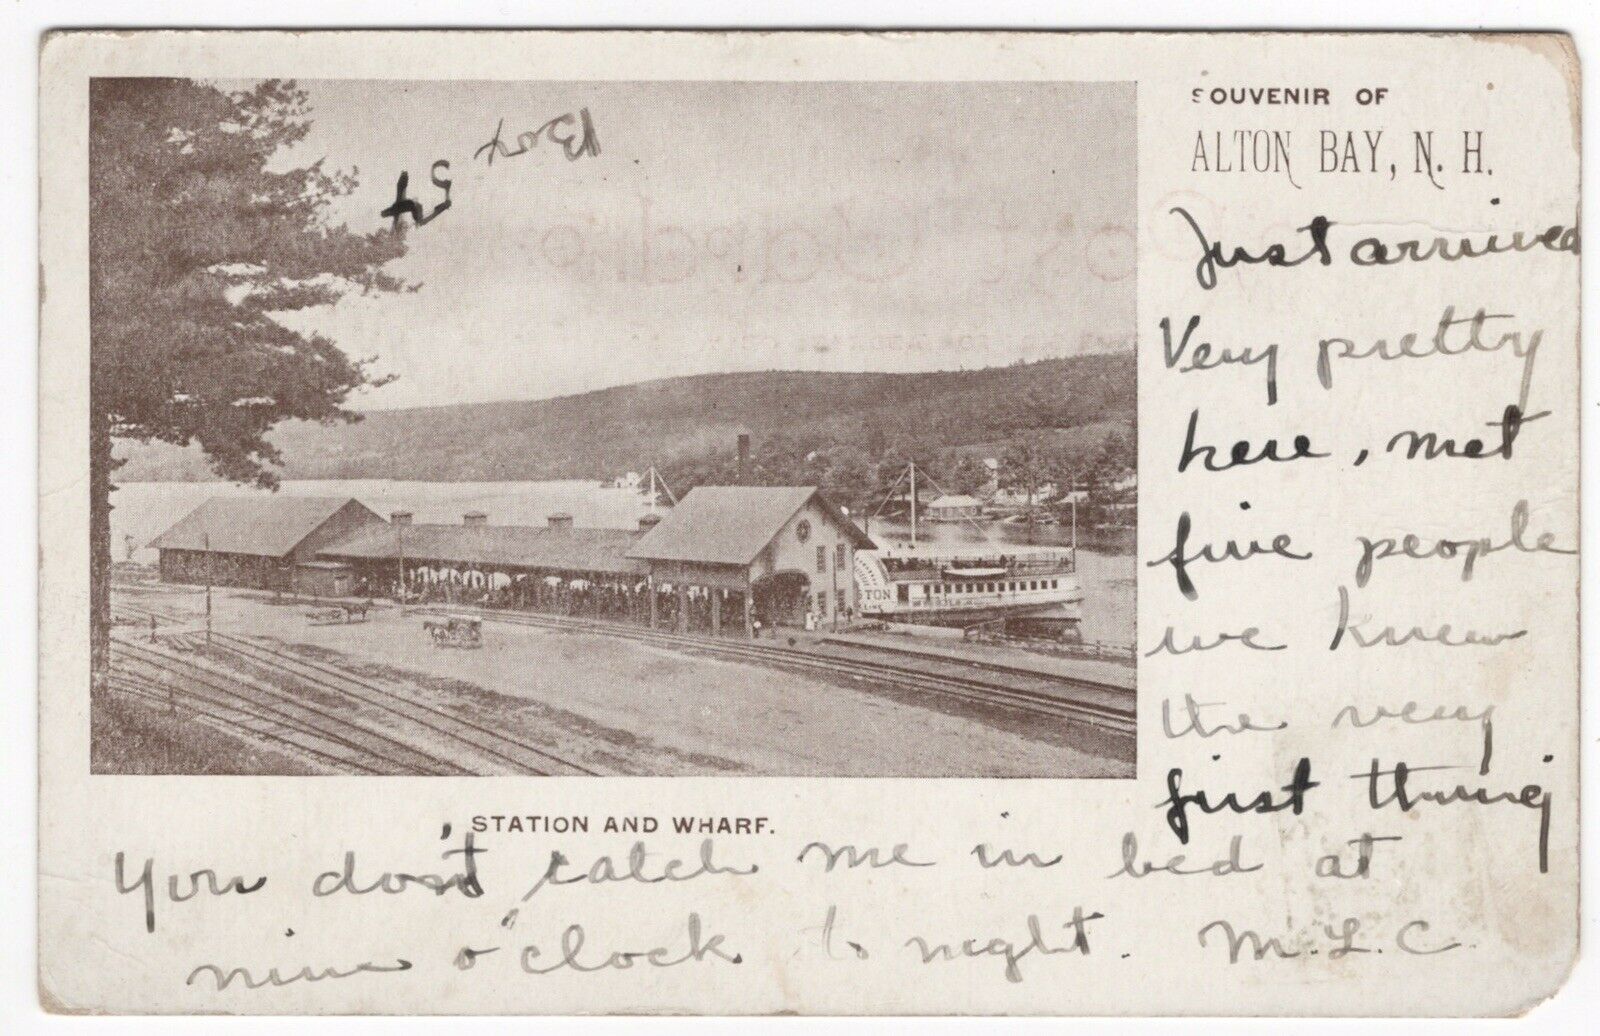 SOUVENIR OF
ALTON BAY, N. H.
Box 54
Just arrived
Very pretty
here, met
five people
we knew
the very
first thing
STATION AND WHARF.
You don't catch me in bed at
nine o'clock to night. M.L.C.
TON
LINE